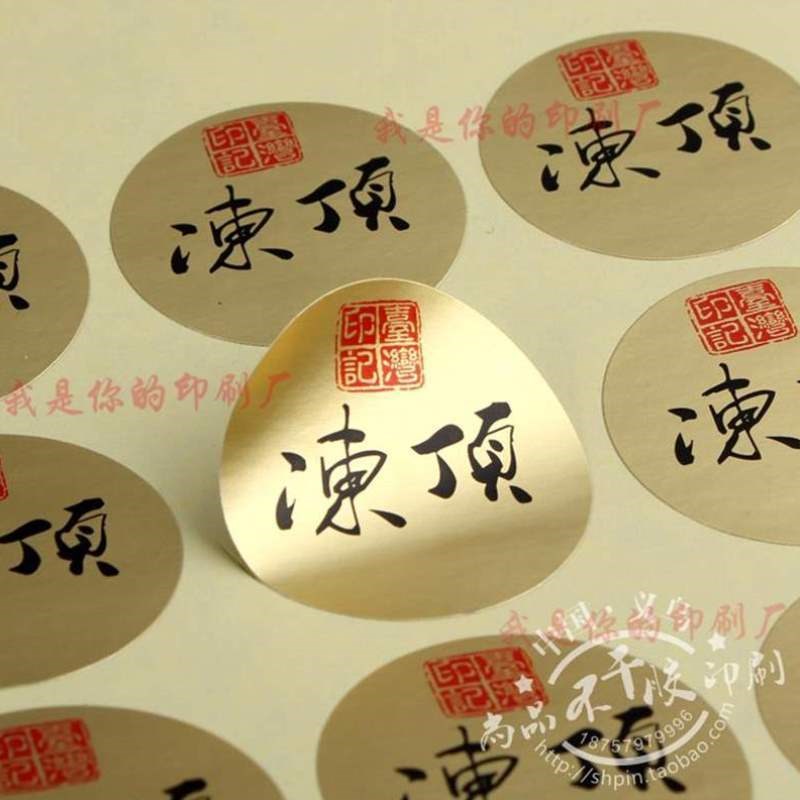 臺灣
印記
凍頂
我是你的印刷厂
臺灣
印記
凍頂
頂
臺灣
印記
凍頂
臺灣
印記
凍
我是你的印刷厂
頂
我是你的印刷厂
中国·义乌
尚品不干胶印刷
18757979996
http://shpin.taobao.com
臺灣
印記
凍頂
臺灣
印記